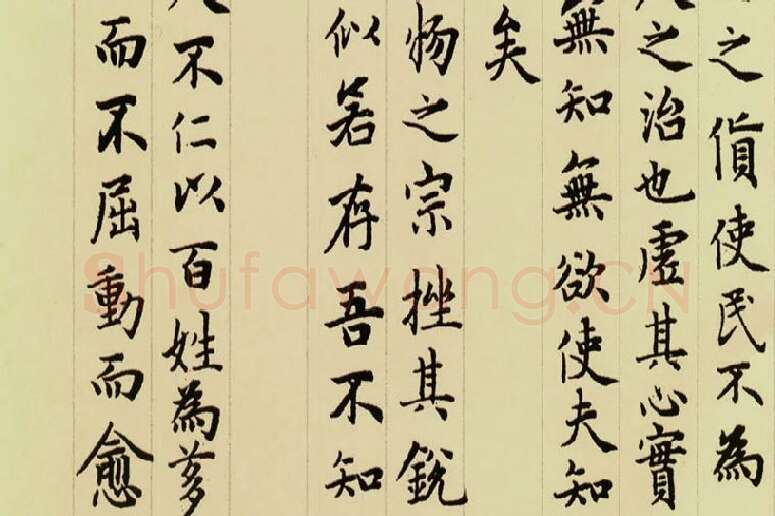 之貨使民不為
之治也虛其心實
無知無欲使夫知
矣
物之宗挫其銳
似若存吾不知
不仁以百姓為芻
而不屈動而愈
Shufawang.CN